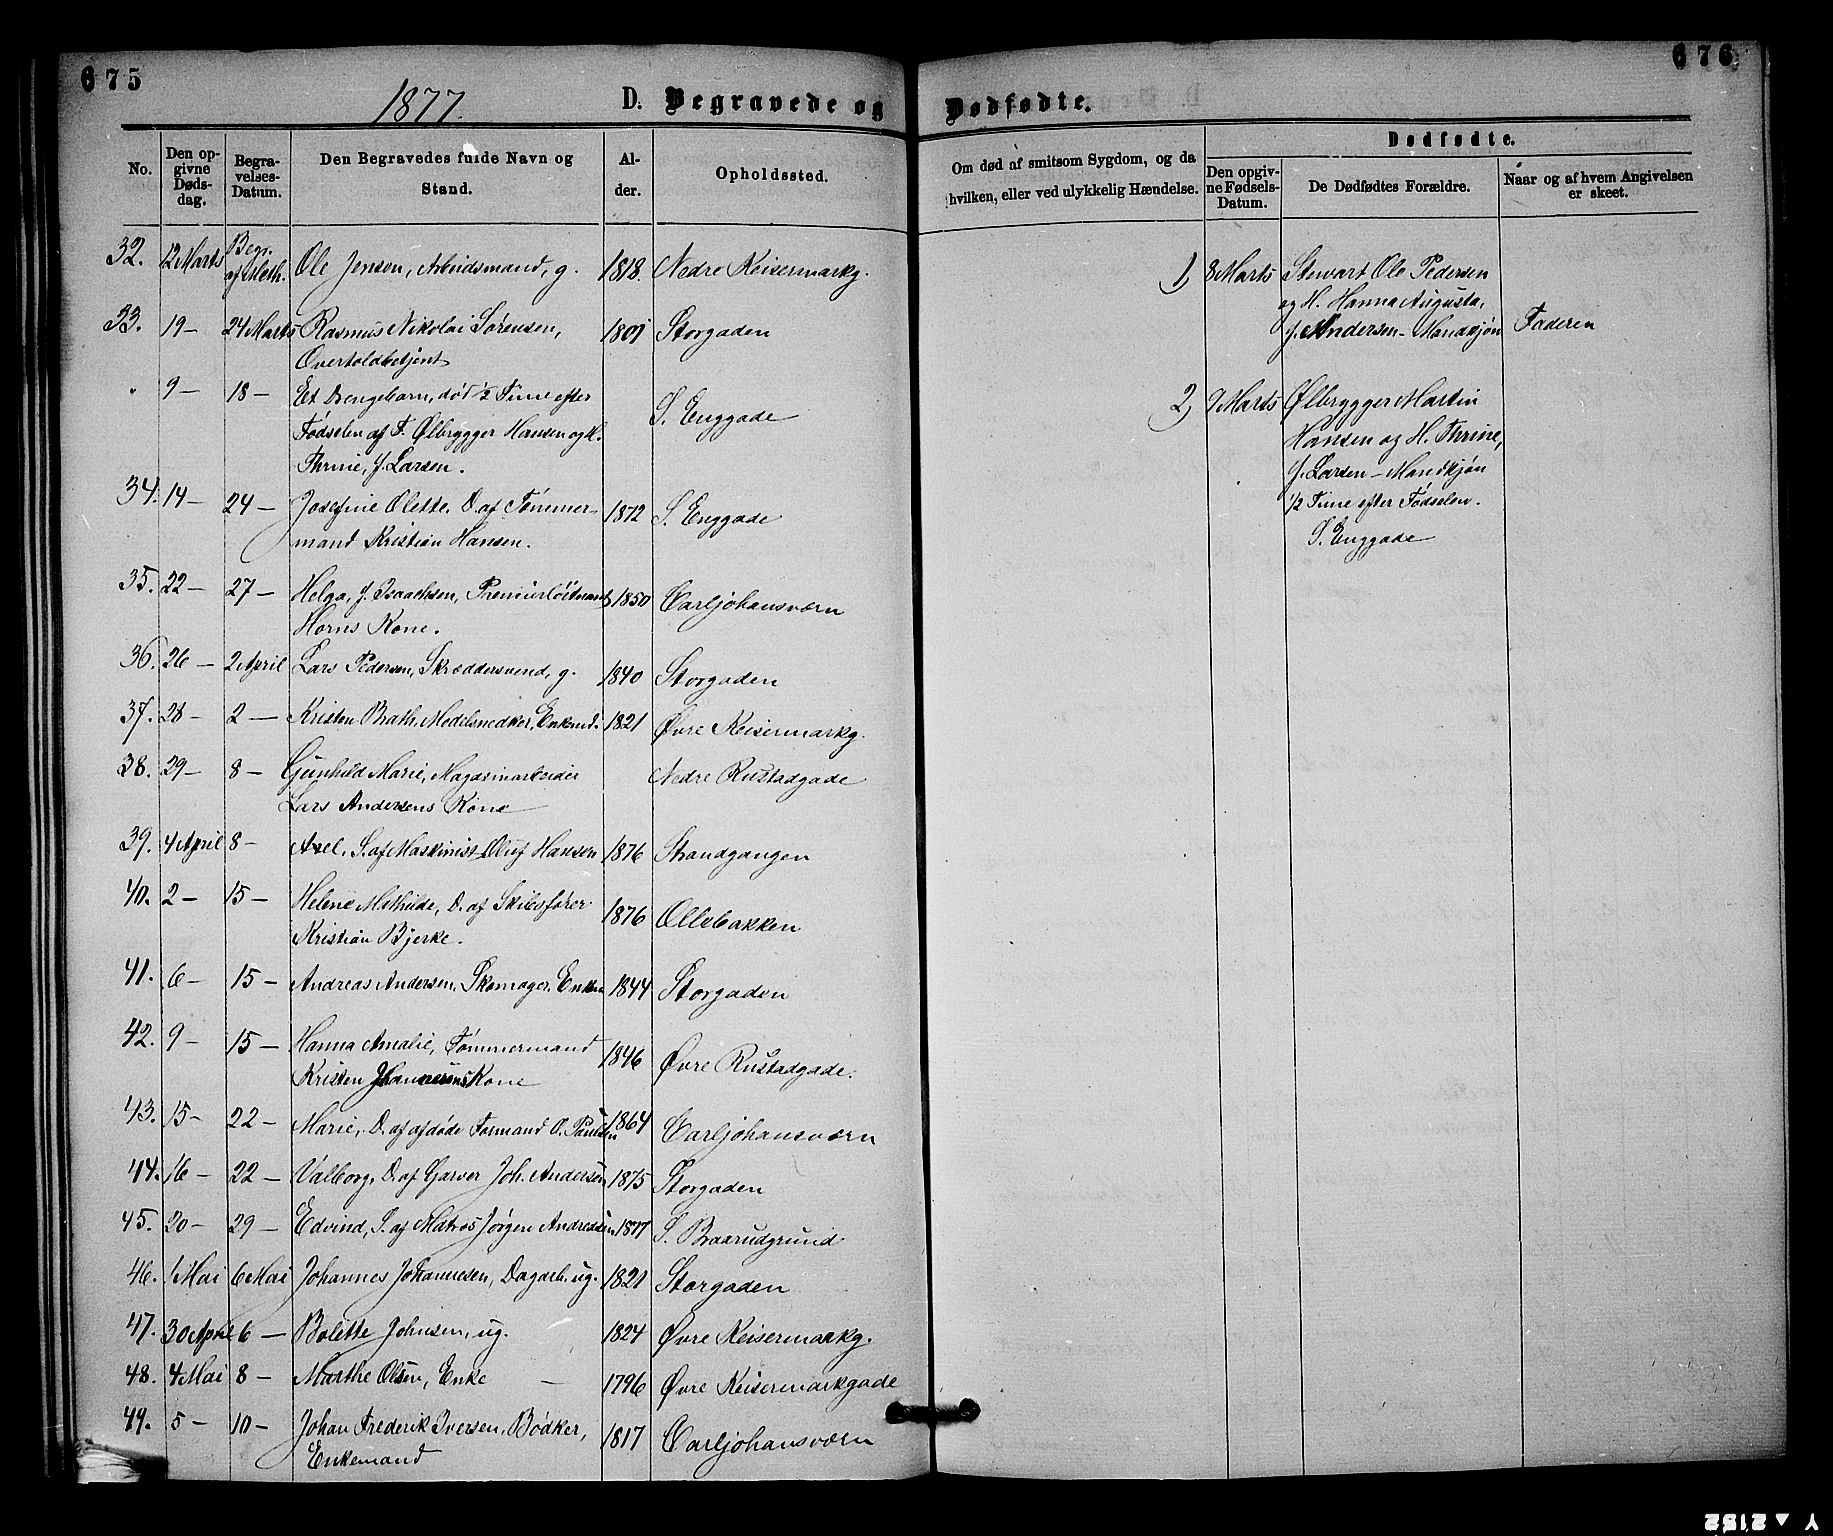 675
676
1877.
D. Begravede og Dødfødte.
No.
Den opgivne Dødsdag.
Begravelses-Datum.
Den Begravedes fulde Navn og Stand.
Alder.
Opholdssted.
Om død af smitsom Sygdom, og da hvilken, eller ved ulykkelig Hændelse.
Dødfødte.
Den opgivne Fødsels-Datum.
De Dødfødtes Forældre.
Naar og af hvem Angivelsen er skeet.
32. 12 Marts Begr. af Meth. Ole Jensen, Arbeidsmand, g. 1818. Nedre Keisermarkg.
33. 19 – 24 Marts Rasmus Nikolai Sørensen, 1801 Storgaden
Overtoldbetjent
" 9 – 18 – Et Drengebarn, död ½ Time efter
Fødselen af F. Ølbrygger Hansen og H. S. Enggade
Thrine, f. Larsen.
34. 14 – 24 – Josefine Olette, D. af Tømmer- 1872 S. Enggade
mand Kristian Hansen.
35. 22 – 27 – Helga, f. Isaachsen, Premierløitnant 1850 Carljohansværn
Horns Kone.
36. 26 – 2 April Lars Pedersen, Skræddersvend, g. 1840 Storgaden
37. 28 – 2 – Kristen Brath, Modelsnedker, Enkemd. 1821 Øvre Keisermarkg.
38. 29 – 8 – Gunhild Marie, Magasinarbeider Nedre Rustadgade
Lars Andersens Kone
39. 4 April 8 – Axel, S. af Maskinist Oluf Hansen 1876 Strandgangen
40. 2 – 15 – Helene Mathilde, D. af Skibsfører 1876 Ollebakken
Kristian Bjerke.
41. 6 – 15 – Andreas Andersen, Skomager, Enkem 1844 Storgaden
42. 9 – 15 – Hanna Amalie, Tømmermand 1846 Øvre Rustadgade.
Kristen Johannesens Kone
43. 15 – 22 – Marie, D. af afdøde Formand O. Paulsen 1864 Carljohansværn
44. 16 – 22 – Valborg, D. af Garver Joh. Andersen 1875 Storgaden
45. 20 – 29 – Edvind, S. af Matros Jørgen Andreassen 1877 S. Braarudgrund
46. 1 Mai 6 Mai Johannes Johannesen, Dagarb. ug. 1821 Storgaden
47. 30 April 6 – Bolette Johnsen, ug. 1824 Øvre Keisermarkg.
48. 4 Mai 8 – Marthe Olsen, Enke – 1796 Øvre Keisermarkgade
49. 5 – 10 – Johan Frederik Iversen, Bødker, 1817 Carljohansværn
Enkemand
1) 8 Marts Stewart Ole Pedersen
og H. Hanna Augusta,
f. Andersen – Mandkjøn Faderen
2) 9 Marts Ølbrygger Martin
Hansen og H. Thrine,
f. Larsen – Mandkjøn
½ Time efter Fødselen.
S. Enggade